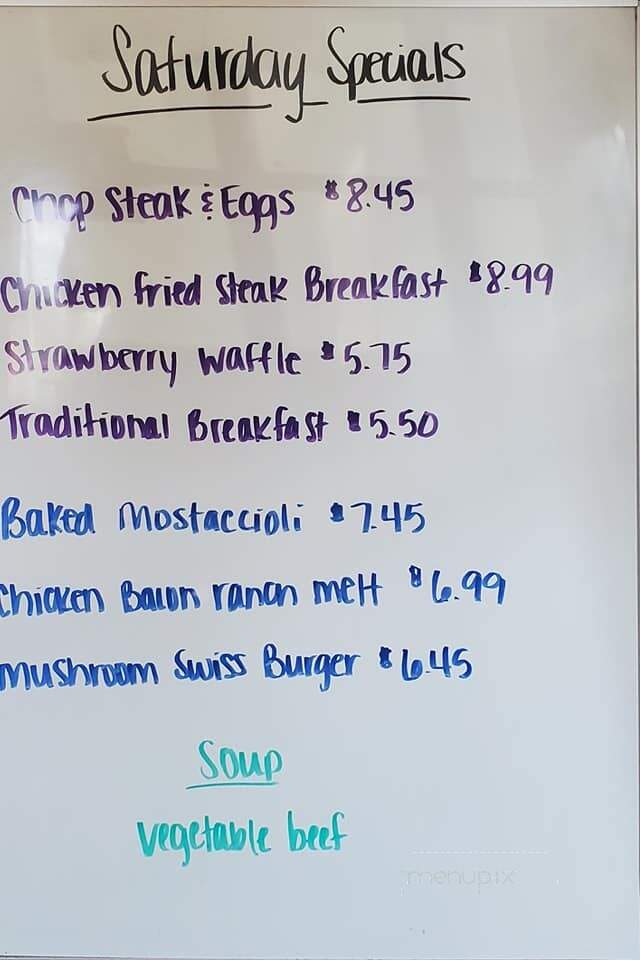 Saturday Specials
Chop Steak & Eggs $8.45
Chicken fried Steak Breakfast $8.99
Strawberry waffle $5.75
Traditional Breakfast $5.50
Baked Mostaccioli $7.45
Chicken Bacon ranch melt $6.99
Mushroom Swiss Burger $6.45
Soup
vegetable beef
menupix